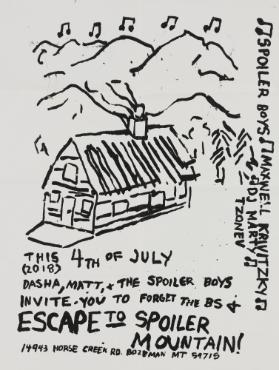 ♫ SPOILER BOYS ♫ MAXWELL KRAVITZKY ♫
& DJ MARTY
TZONEV
THIS 4TH OF JULY
(2018)
DASHA, MATT, & THE SPOILER BOYS
INVITE YOU TO FORGET THE BS &
ESCAPE TO SPOILER
MOUNTAIN!
14993 HORSE CREEK RD. BOZEMAN MT 59715